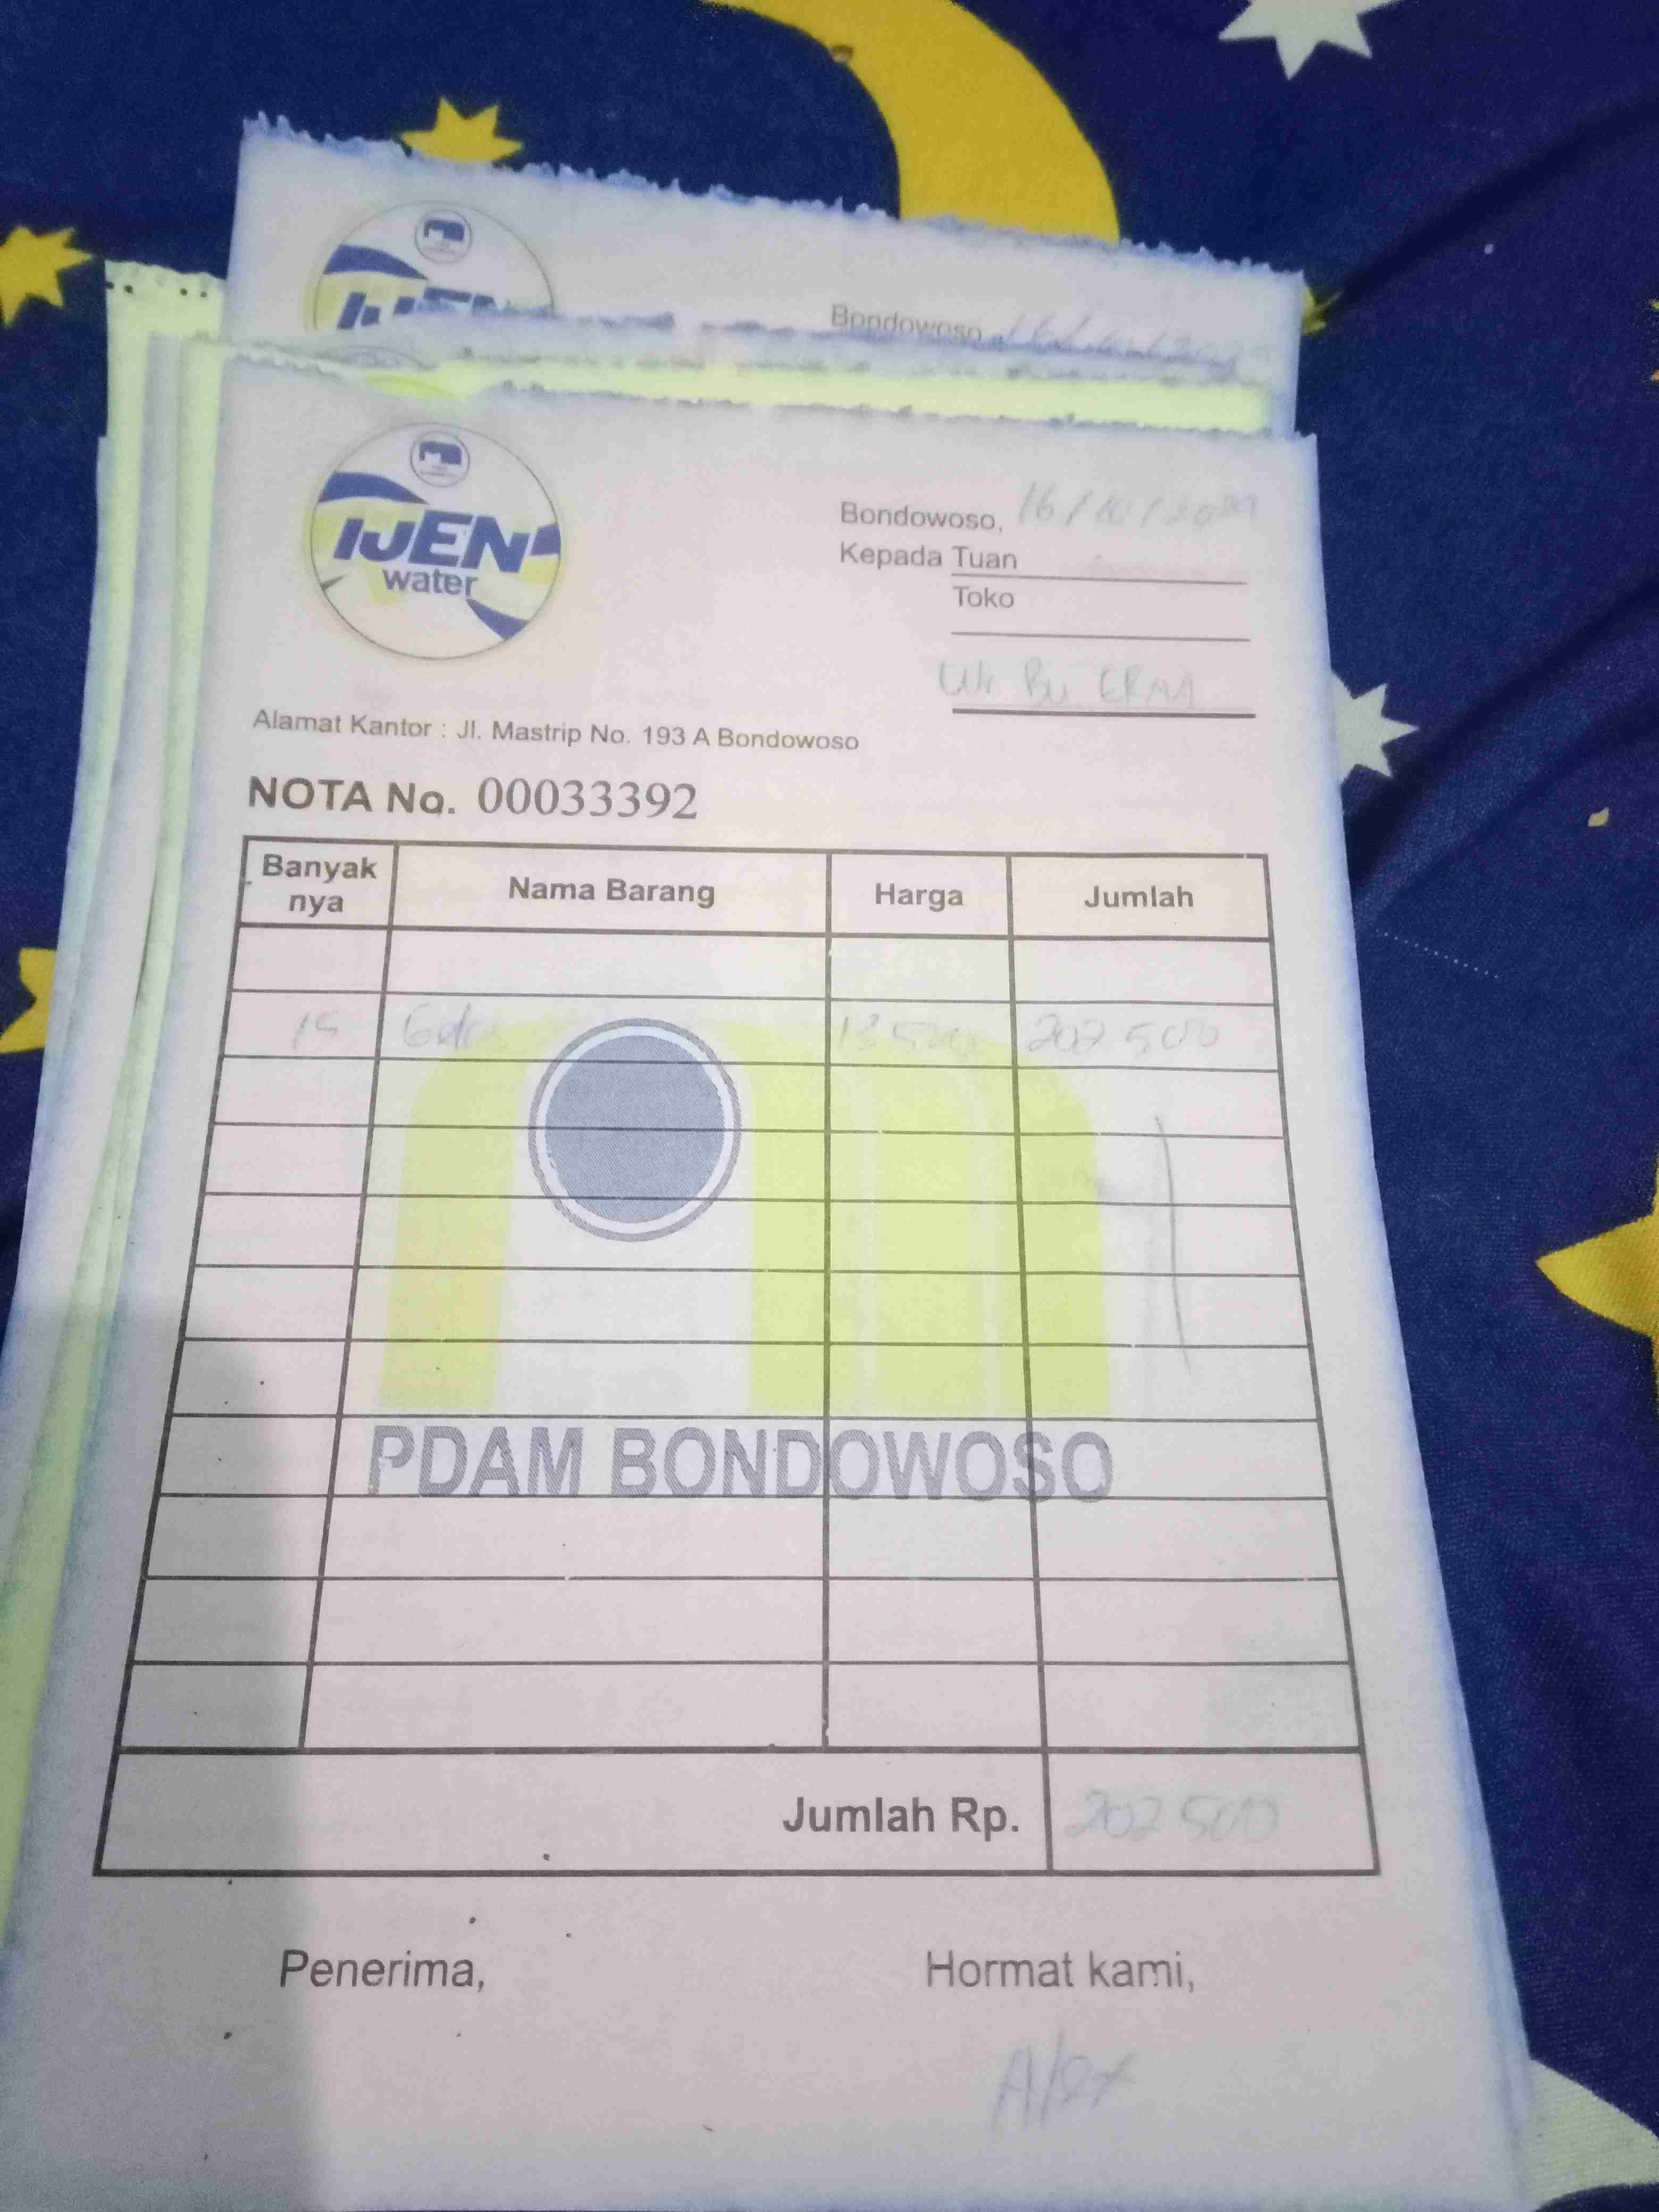 Bondowoso,
IJEN
water
Bondowoso, 16/
Kepada Tuan
Toko
Bu ERNA
Alamat Kantor : Jl. Mastrip No. 193 A Bondowoso
NOTA No. 00033392
Banyak nya Nama Barang Harga Jumlah
15 202 500
PDAM BONDOWOSO
Jumlah Rp. 202 500
Penerima, Hormat kami,
Alex